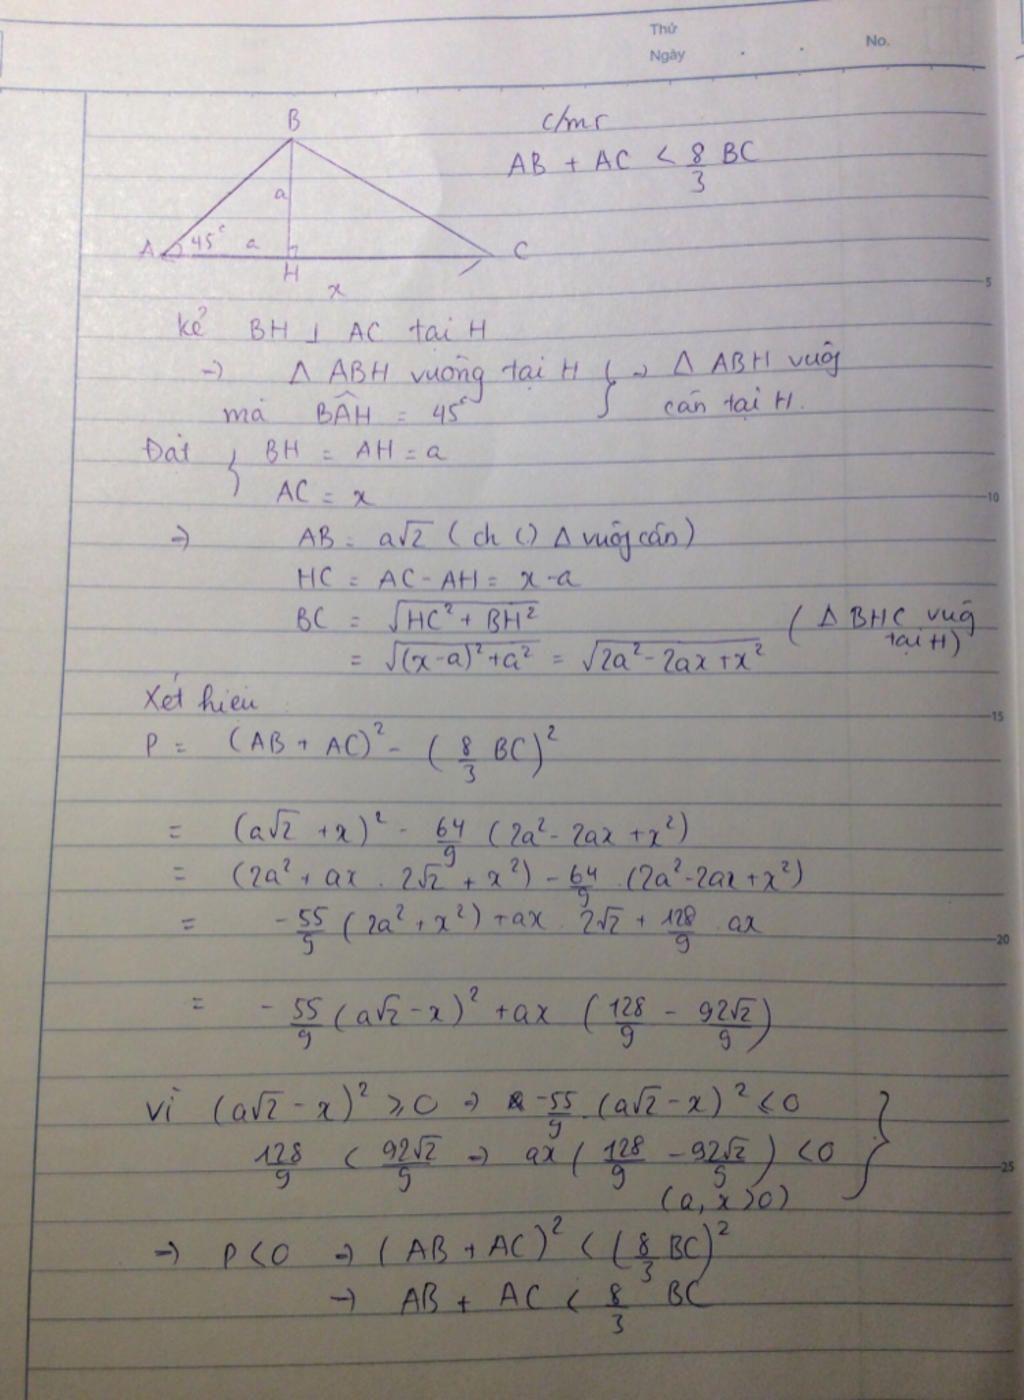 Thứ
Ngày . . No.
B
c/mr
AB + AC < 8/3 BC
a
A 45° a C
H
x
5
kẻ BH ⊥ AC tại H
→ Δ ABH vuông tại H } → Δ ABH vuôg
mà BÂH = 45° cân tại H.
Đặt { BH = AH = a
AC = x
10
→ AB = a√2 (ch () Δ vuôg cân)
HC = AC - AH = x - a
BC = √(HC² + BH²) (Δ BHC vug
= √((x-a)² + a²) = √(2a² - 2ax + x²) tại H)
Xét hiệu
15
P = (AB + AC)² - (8/3 BC)²
= (a√2 + x)² - 64/9 (2a² - 2ax + x²)
= (2a² + ax . 2√2 + x²) - 64/9 . (2a² - 2ax + x²)
= -55/9 (2a² + x²) + ax . 2√2 + 128/9 . ax
20
= -55/9 (a√2 - x)² + ax (128/9 - 92√2/9)
Vì (a√2 - x)² ⩾ 0 → -55/9 . (a√2 - x)² ⩽ 0
128/9 < 92√2/9 → ax (128/9 - 92√2/9) < 0 }
25
(a, x > 0)
→ P < 0 → (AB + AC)² < (8/3 BC)²
→ AB + AC < 8/3 BC